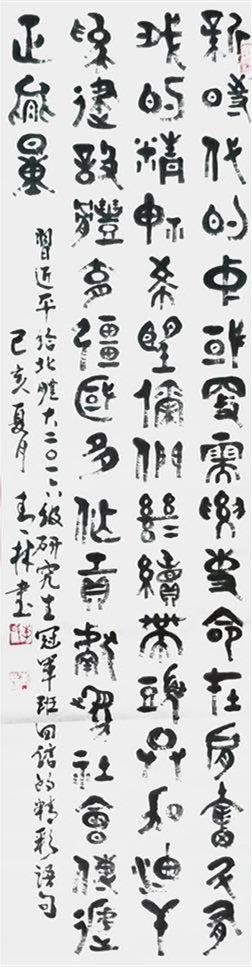 新時代的中或更需要使命在肩奮斗有
我的精神希望儞們繼續帶頭拼加油干
為建設體育彊國多作貢獻為社會傳遞
正能量
習近平給北體大二〇一六級研究生冠軍班回信的精彩語句
己亥夏月 林書